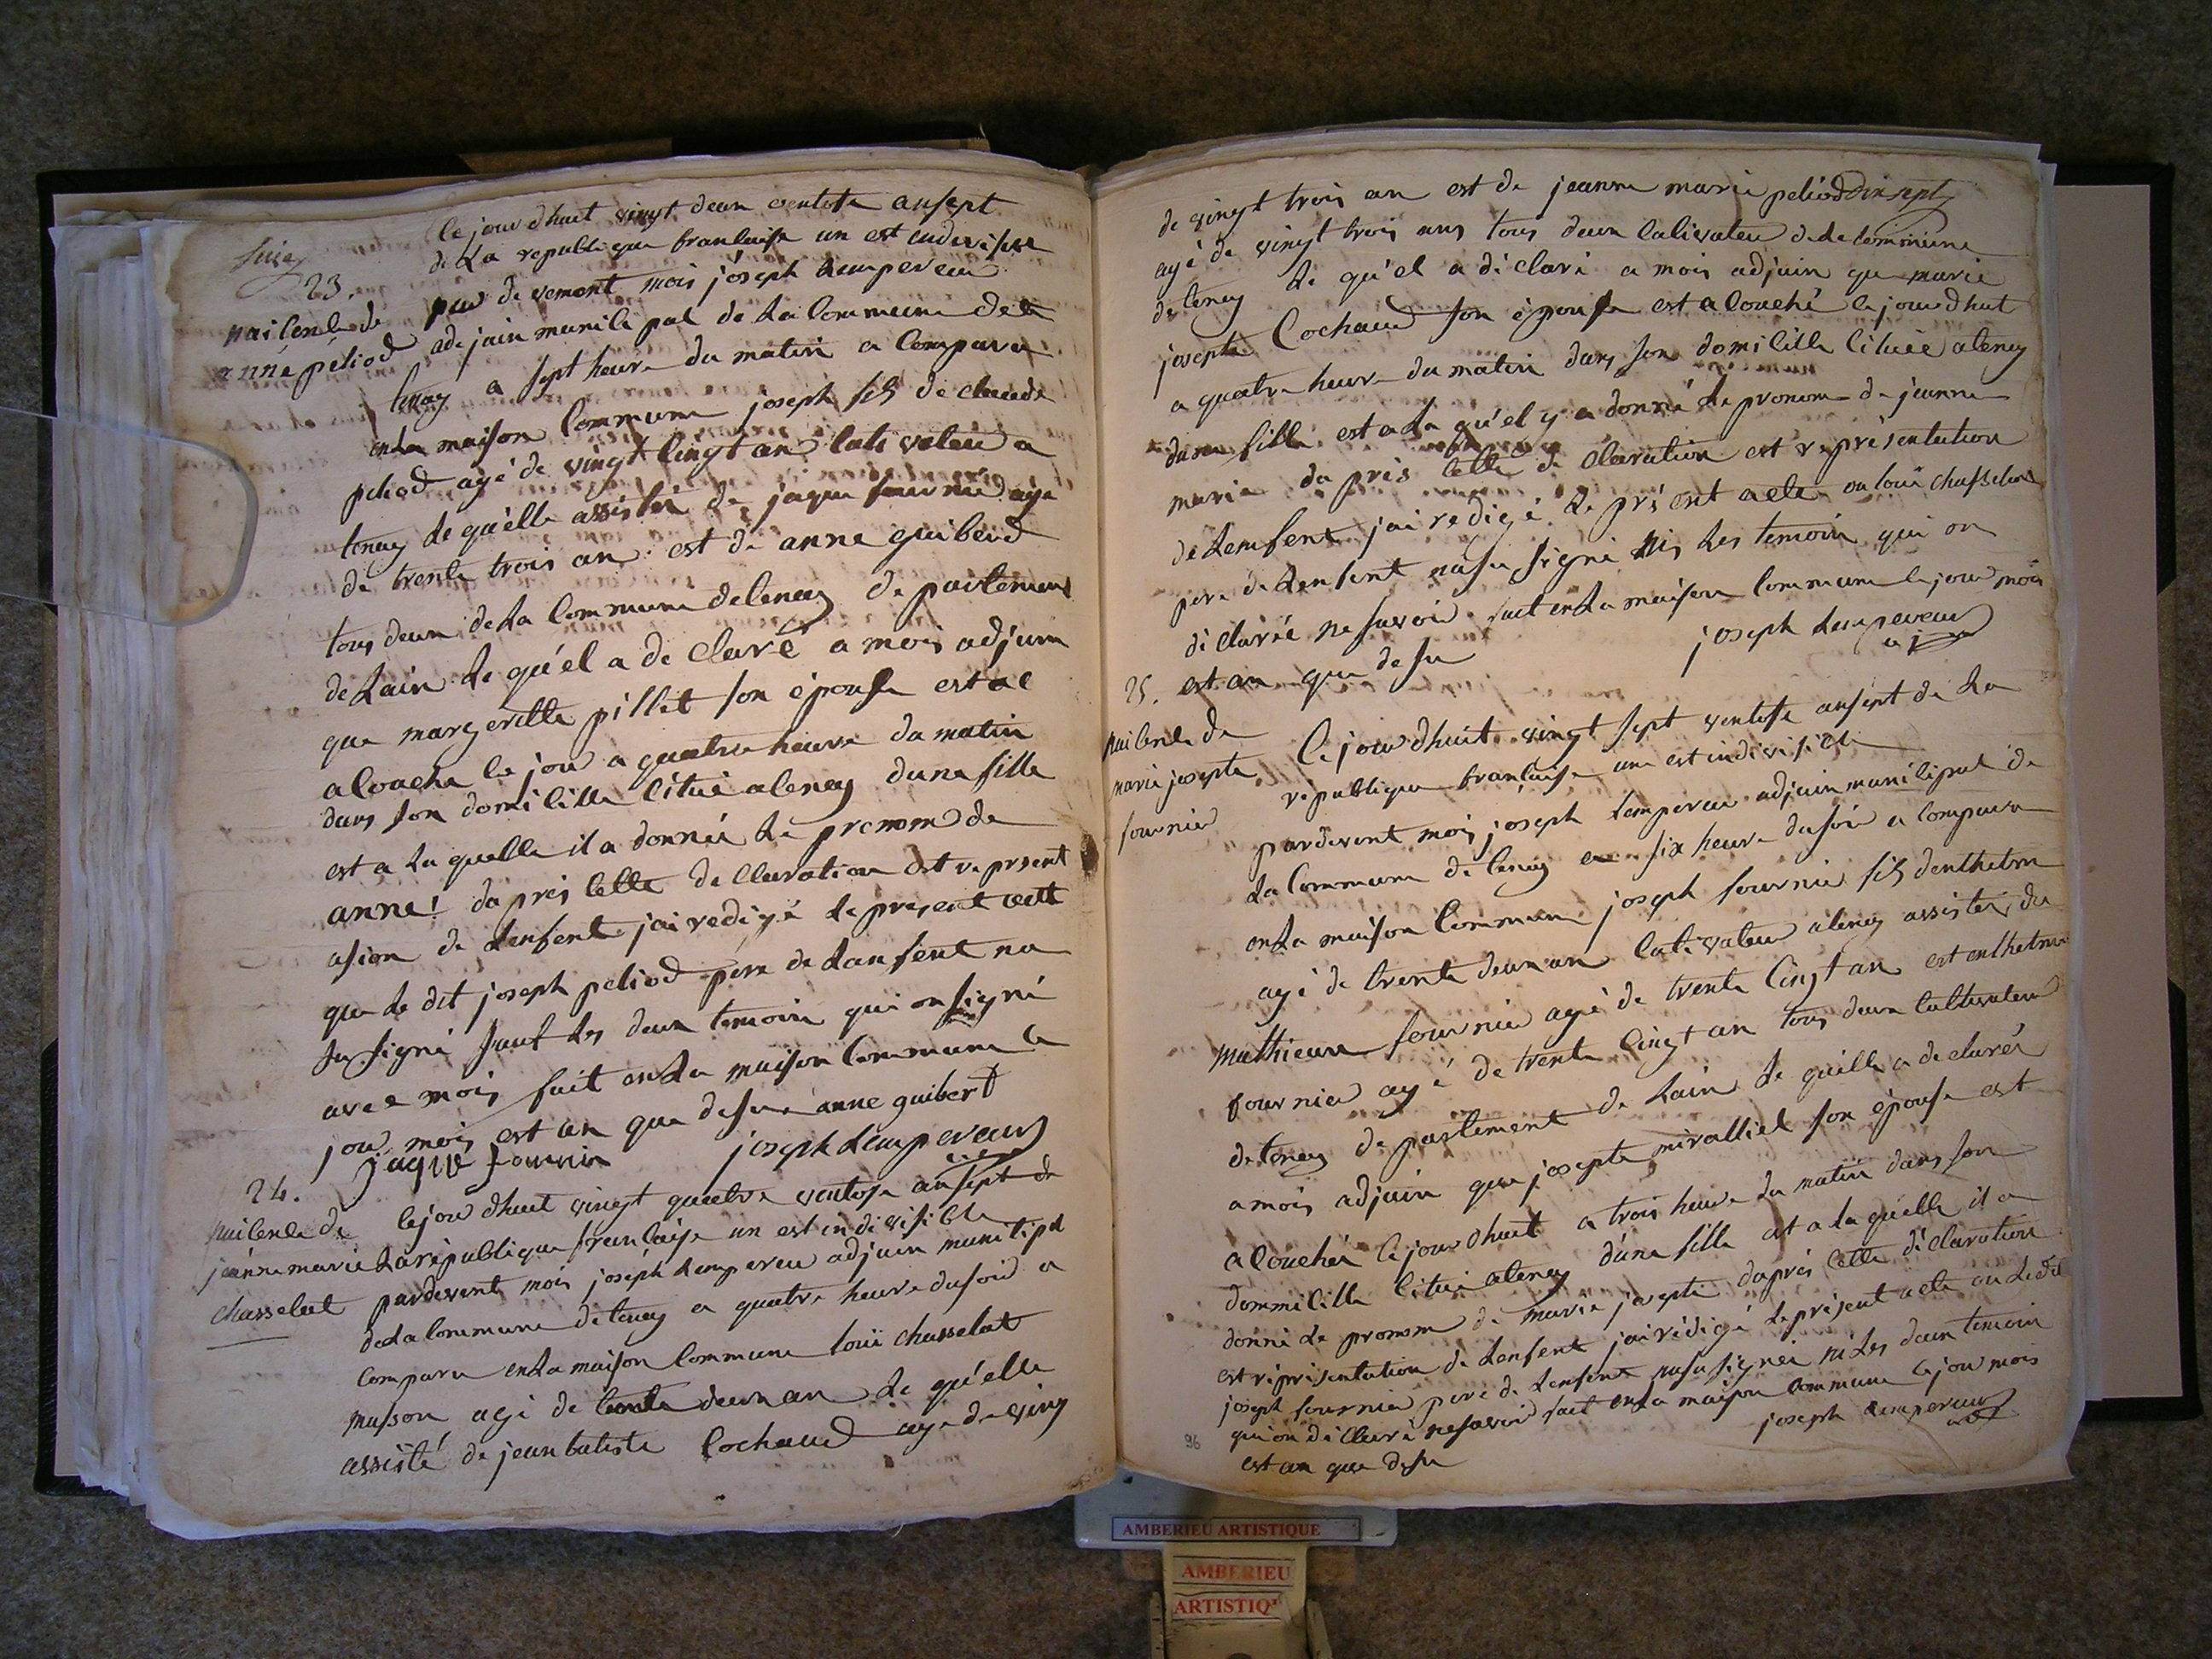 seize
23.
naisence de
anné péliod
Ce jourd huit vingt deux ventose an sept
de La republique francaise un est indivisible
par de vement mois joseph Lempereur
adejoin municipal de La Commune de
tenay a sept heure du matin a Comparu
en La maison Commune joseph fils de claude
peliod agé de vingt cinqt an cultivateu a
tenay le quelle assisté de jaque fournié age
de trente trois an est de anne guiberd
tous deux de La Commune detenay de partement
de Lain Le quel a de claré a mois adjoin
que margeritte pillet son épouse est ac
acouche ce jour a quatre heure du matin
dans son domicille cituè atenay dune fille
est a La quelle il a donnée Le prenom de
anne! da prés cette declaration est reprsent
asion de Lenfent jai redigé Le present acte
que Le dit joseph peliod pere de Lanfent na
su signé sauf Les deux temoin qui on signé
avec mois fait en La maison Commune le
jour mois est an que desue anne guibert
jaque fournier joseph Lempereur
24.
naisence de
jeanne marie
chasselat
Cejourdhuit vingt quatre ventose an sept de
La république francaise un est indivisible
pardevent mois joseph Lempereu adjoin municipal
de La Commune de tenay a quatre heure du soir a
Comparu en La maison Commune louï chasselat
masson agé de trente deux an Le quelle
assisté de jean batiste Cochaud age de ving
de vingt trois an est de jeanne marie peliod dix sept
agé de vingt trois ans tous deux Cultivateu de La Commune
de tenay Le quel a dèclaré a mois adjoin que marie
josepte Cochaud son épouse est acouché ce jourdhut
a quatre heure du matin dans son domicille cituée atenay
dune fille est a La quel y a donné Le pronom de jeanne
marie da prés cette dèclaration est reprèsentation
de Lenfent jai redigé Le présent acte ou louï chasselat
pere de Lenfent nasu signé nis Les temoin qui on
dèclarée ne savoir fait en La maison Commune ce jour mois
est an que desu joseph Lempereur
25.
naisence de
marie josepte
fournier
Ce jourdhuit vingt sept ventose an sept de La
république francaise une est indivisible
pardevent mois joseph Lempereu adjoin municipal de
La Commune de tenay a six heure du soir a comparu
en La maison Commune joseph fournié fils denthelme
agé de trente deux an Cultivateur atenay assistée de
mathieux fournié agé de trente Cinqt an est enthelme
fournier agé de trente Cinqt an tous deux Cultivateur
de tenay de partement de Lain Le quelle a declarée
a mois adjoin que josepte miralliet son épouse est
a couchée ce jourdhuit a trois heure du matin dans son
dommicille cituè atenay dune fille est a la quelle il a
donné Le pronom de marie josepte daprés cette dèclaration
est répresentation de Lenfent jai rédigé Le présent acte ou Ledit
joseph fournier pere de Lenfent nasu signer ni Les deux temoin
qui on dèclaré ne savoir fait en La maison Commune ce jour mois
est an que desu joseph Lempereur
96
AMBERIEU ARTISTIQUE
AMBERIEU
ARTISTIQ